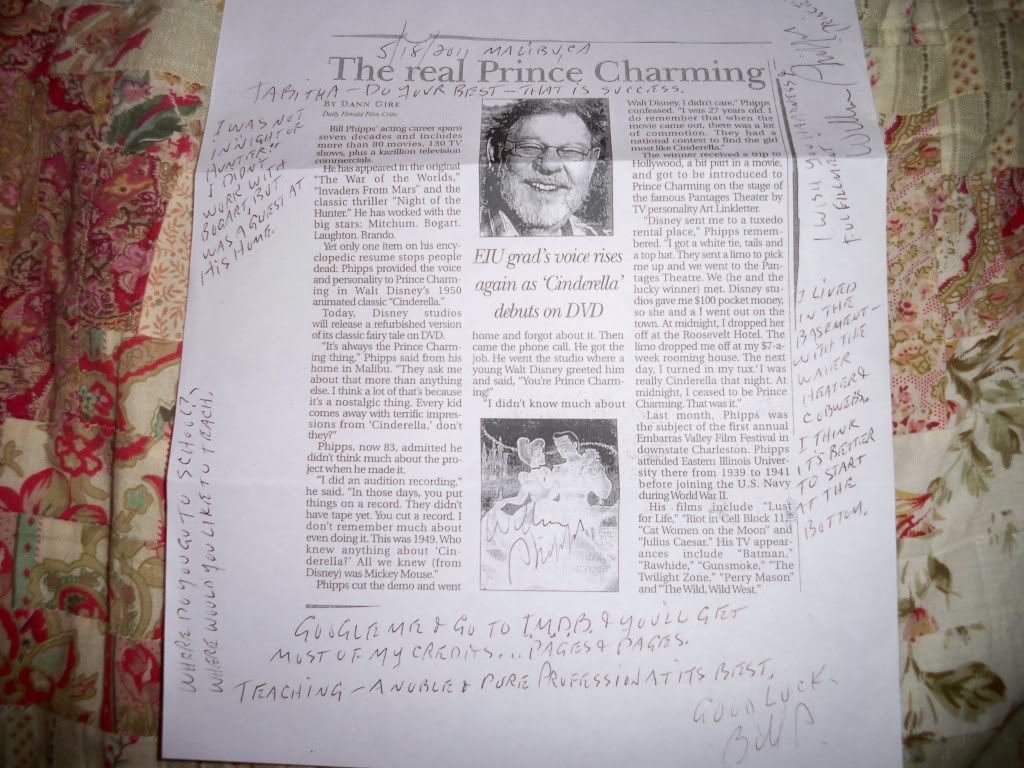 5/18/2011 MALIBU, CA
The real Prince Charming
TABITHA - DO YOUR BEST - THAT IS SUCCESS.
BY DANN GIRE
Daily Herald Film Critic
Bill Phipps' acting career spans
seven decades and includes
more than 80 movies, 130 TV
shows, plus a kazillion television
commercials.
He has appeared in the original
"The War of the Worlds,"
"Invaders From Mars" and the
classic thriller "Night of the
Hunter." He has worked with the
big stars: Mitchum. Bogart.
Laughton. Brando.
Yet only one item on his ency-
clopedic resume stops people
dead: Phipps provided the voice
and personality to Prince Charm-
ing in Walt Disney's 1950
animated classic "Cinderella."
Today, Disney studios
will release a refurbished version
of its classic fairy tale on DVD.
"It's always the Prince Charm-
ing thing," Phipps said from his
home in Malibu. "They ask me
about that more than anything
else. I think a lot of that's because
it's a nostalgic thing. Every kid
comes away with terrific impres-
sions from 'Cinderella,' don't
they?"
Phipps, now 83, admitted he
didn't think much about the pro-
ject when he made it.
"I did an audition recording,"
he said. "In those days, you put
things on a record. They didn't
have tape yet. You cut a record. I
don't remember much about
even doing it. This was 1949. Who
knew anything about 'Cin-
derella?' All we knew (from
Disney) was Mickey Mouse."
Phipps cut the demo and went
EIU grad's voice rises
again as 'Cinderella'
debuts on DVD
home and forgot about it. Then
came the phone call. He got the
job. He went the studio where a
young Walt Disney greeted him
and said, "You're Prince Charm-
ing!"
"I didn't know much about
William
Phipps
Walt Disney. I didn't care," Phipps
confessed. "I was 27 years old. I
do remember that when the
movie came out, there was a lot
of commotion. They had a
national contest to find the girl
most like Cinderella."
The winner received a trip to
Hollywood, a bit part in a movie,
and got to be introduced to
Prince Charming on the stage of
the famous Pantages Theater by
TV personality Art Linkletter.
"Disney sent me to a tuxedo
rental place," Phipps remem-
bered. "I got a white tie, tails and
a top hat. They sent a limo to pick
me up and we went to the Pan-
tages Theatre. We (he and the
lucky winner) met. Disney stu-
dios gave me $100 pocket money,
so she and a I went out on the
town. At midnight, I dropped her
off at the Roosevelt Hotel. The
limo dropped me off at my $7-a-
week rooming house. The next
day, I turned in my tux. I was
really Cinderella that night. At
midnight, I ceased to be Prince
Charming. That was it."
Last month, Phipps was
the subject of the first annual
Embarras Valley Film Festival in
downstate Charleston. Phipps
attended Eastern Illinois Univer-
sity there from 1939 to 1941
before joining the U.S. Navy
during World War II.
His films include "Lust
for Life," "Riot in Cell Block 11,"
"Cat Women on the Moon" and
"Julius Caesar." His TV appear-
ances include "Batman,"
"Rawhide," "Gunsmoke," "The
Twilight Zone," "Perry Mason"
and "The Wild, Wild West."
I WAS NOT
IN NIGHT OF
HUNTER."
I DIDN'T
WORK WITH
BOGART, BUT
WAS A GUEST AT
HIS HOME.
WHERE DO YOU GO TO SCHOOL?
WHERE WOULD YOU LIKE TO TEACH?
I WISH YOU HAPPINESS &
FULFILLMENT
William Phipps
PRINCE
I LIVED
IN THE
BASEMENT -
WITH THE
WATER
HEATER &
COBWEBS.
I THINK
IT'S BETTER
TO START
AT THE
BOTTOM.
GOOGLE ME & GO TO I.M.D.B. & YOU'LL GET
MOST OF MY CREDITS... PAGES & PAGES.
TEACHING - A NOBLE & PURE PROFESSION AT ITS BEST.
GOOD LUCK.
Bill P.